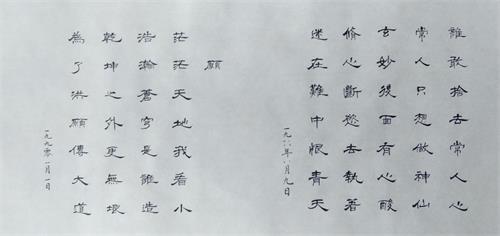 誰敢捨去常人心
常人只想做神仙
玄妙後面有心酸
脩心斷慾去執著
迷在難中恨青天
一九八八年月九日
願
茫茫天地我看小
浩瀚蒼穹是誰造
乾坤之外更無垠
為了洪願傳大道
一九九零一月一日